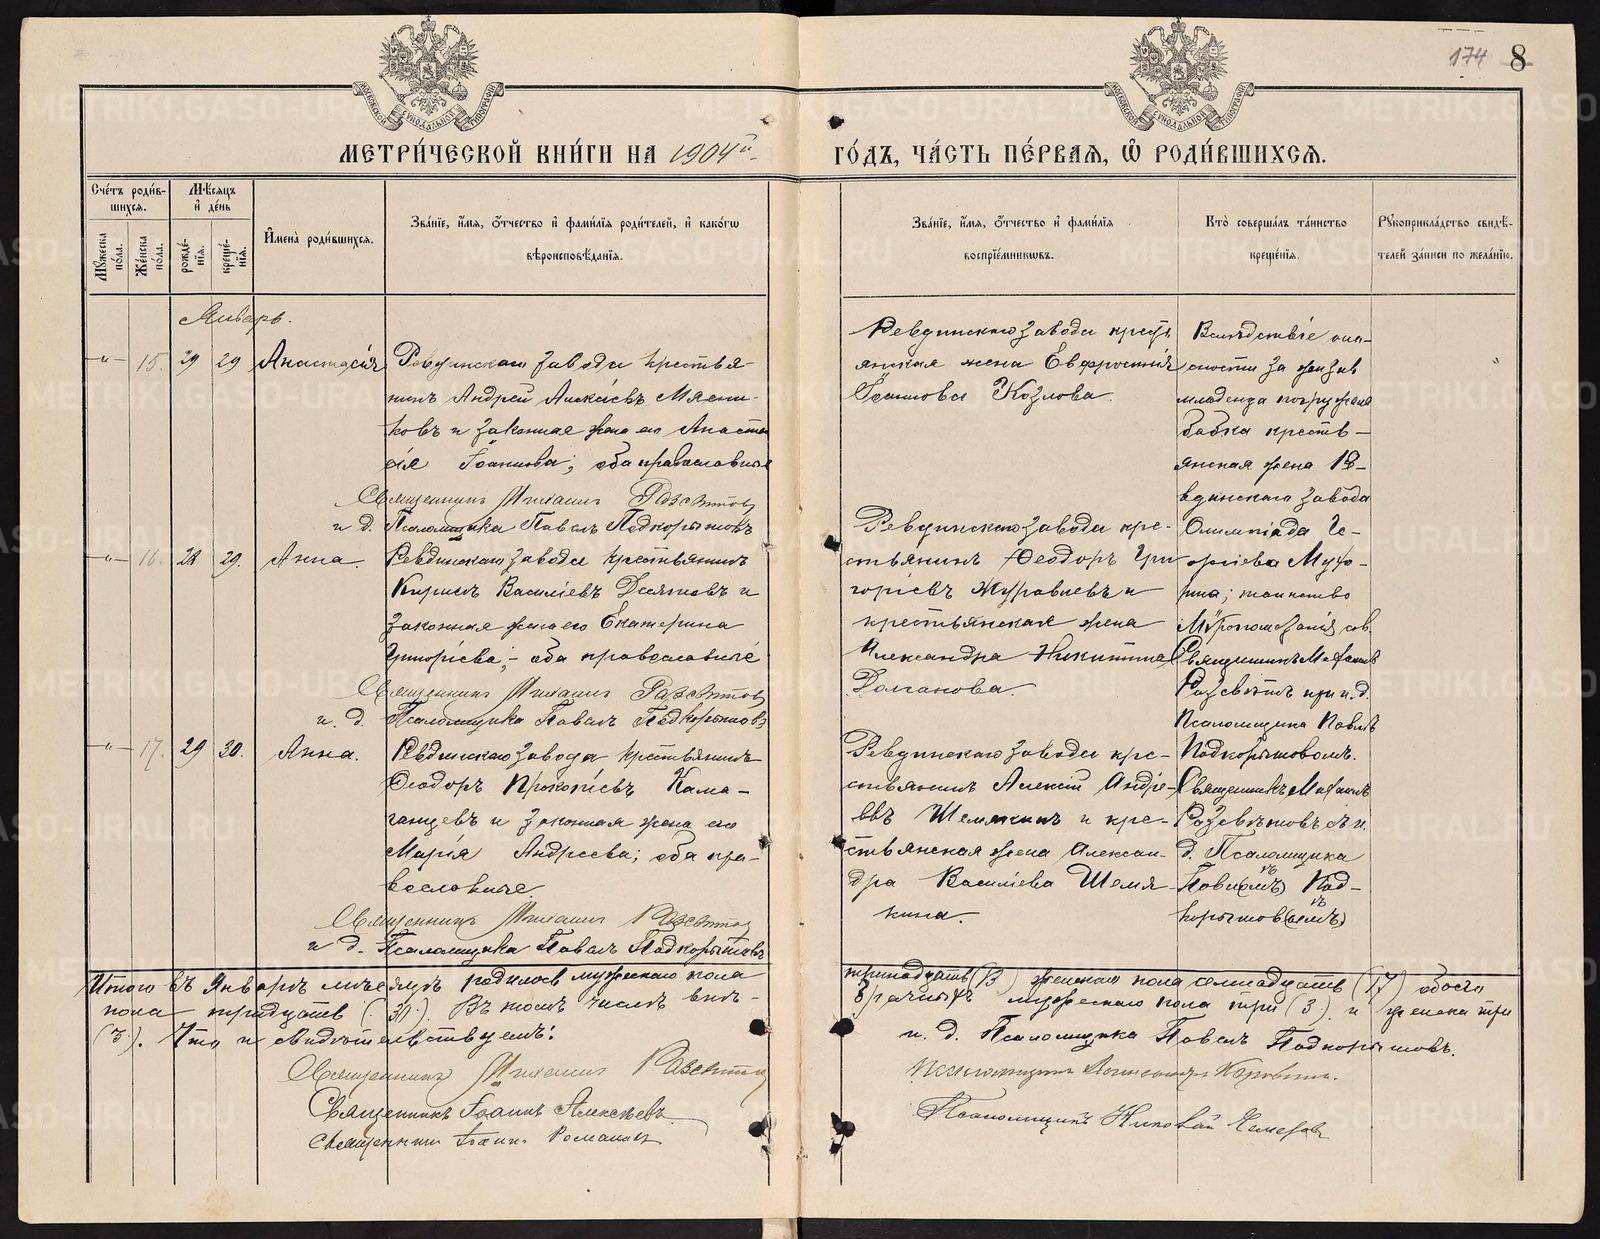 174 8
МЕТРИ́ЧЕСКОЙ КНИ́ГИ НА 1904й
ГО́ДЪ, ЧА́СТЬ ПЕ́РВАЯ, Ѿ РОДИ́ВШИХСЯ.
Сче́тъ роди́вшихся.
Мѣ́сяцъ и҆ де́нь
Мꙋ́жеска по́ла.
Же́нска по́ла.
рожде́нїѧ.
креще́нїѧ.
И҆мена̀ роди́вшихсѧ.
Зва́нїе, и҆́мѧ, ѻ҆́тчество и҆ фами́лїѧ роди́телей, и҆ како́гѡ
вѣроисповѣ́данїѧ.
Зва́нїе, и҆́мѧ, ѻ҆́тчество и҆ фами́лїѧ
воспрїе́мникѡвъ.
Кто̀ соверша́лъ та́инство
креще́нїѧ.
Рꙋкоприкла́дство свидѣ́-
телей за́писи по жела́нїю.
Январь.
-"- 15. 29 29 Анастасія
Ревдинскаго завода крестья-
нинъ Андрей Алексіевъ Мясни-
ковъ и законная жена его Анаста-
сія Іоаннова; оба православные
Священникъ Михаилъ
и. д. Псаломщика Павелъ Подкорытовъ
Ревдинскаго завода кресть
янская жена Евфросинія
Іоаннова Козлова.
Вслѣдствіе опа-
сности за жизнь
младенца погружала
бабка кресть-
янская жена Ре-
вдинскаго завода
Олимпіада Ге-
оргіева
таинство
Мѵропомазанія сов.
Священникъ Михаилъ
при и. д.
Псаломщика Павлѣ
Подкорытовомъ.
-"- 16. 28 29. Анна.
Ревдинскаго завода крестьянинъ
Кирилъ Василіевъ Десятовъ и
законная жена его Екатерина
Григоріева; оба православные
Священникъ Михаилъ
и. д. Псаломщика Павелъ Подкорытовъ
Ревдинскаго завода кре-
стьянинъ Ѳеодоръ Гри
горіевъ Журавлевъ и
крестьянская жена
Александра Никитина
-"- 17. 29 30. Анна.
Ревдинскаго завода крестьянинъ
Ѳеодоръ Прокопіевъ Кама-
ганцевъ и законная жена его
Марія Андреева; оба пра-
вославные
Священникъ Михаилъ
и. д. Псаломщика Павелъ Подкорытовъ
Ревдинскаго завода кре-
стьянинъ Алексій Андре-
евъ Шемякинъ и кре-
стьянская жена Алексан-
дра Василіева Шемя-
кина.
Священникъ Михаилъ
съ и.
д. Псаломщика
Под-
Итого въ Январѣ мѣсяцѣ родилось мужескаго пола
тринадцать (13) женскаго пола семнадцать (17) обоего
пола тридцать (30). Въ томъ числѣ внѣ-
брачныхъ мужескаго пола три (3) и женска три
(3). Что и свидѣтельствуемъ:
и. д. Псаломщика Павелъ Подкорытовъ.
Священникъ Михаилъ
Псаломщикъ Александръ
Священникъ Іоаннъ Алексѣевъ
Псаломщикъ Николай
Священникъ Іоаннъ Романовъ